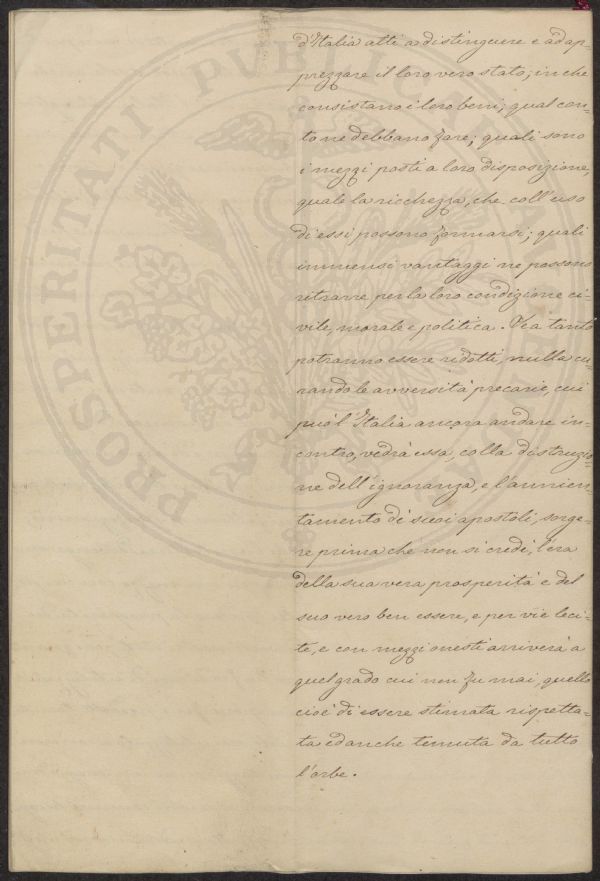 d'Italia atti a distinguere e ad ap=
prezzare il loro vero stato; in che
consistano i loro beni; qual con=
to ne debbano fare; quali sono
i mezzi posti a loro disposizione,
quale la ricchezza, che coll'uso
di essi possono formarsi; quali
immensi vantaggi ne possono
ritrarre per la loro condizione ci=
vile, morale e politica. Se a tanto
potranno essere ridotti, nulla cu=
rando le avversità precarie, cui
può l'Italia ancora andare in=
contro, vedrà essa, colla distruzio=
ne dell'ignoranza, e l'annien=
tamento di suoi apostoli, sorge=
re prima che non si credi, l'èra
della sua vera prosperità e del
suo vero ben essere, e per vie leci=
te, e con mezzi onesti arriverà a
quel grado cui non fu mai, quello
cioè di essere stimata rispetta=
ta ed anche temuta da tutto
l'orbe.
PROSPERITATI PUBLICAE